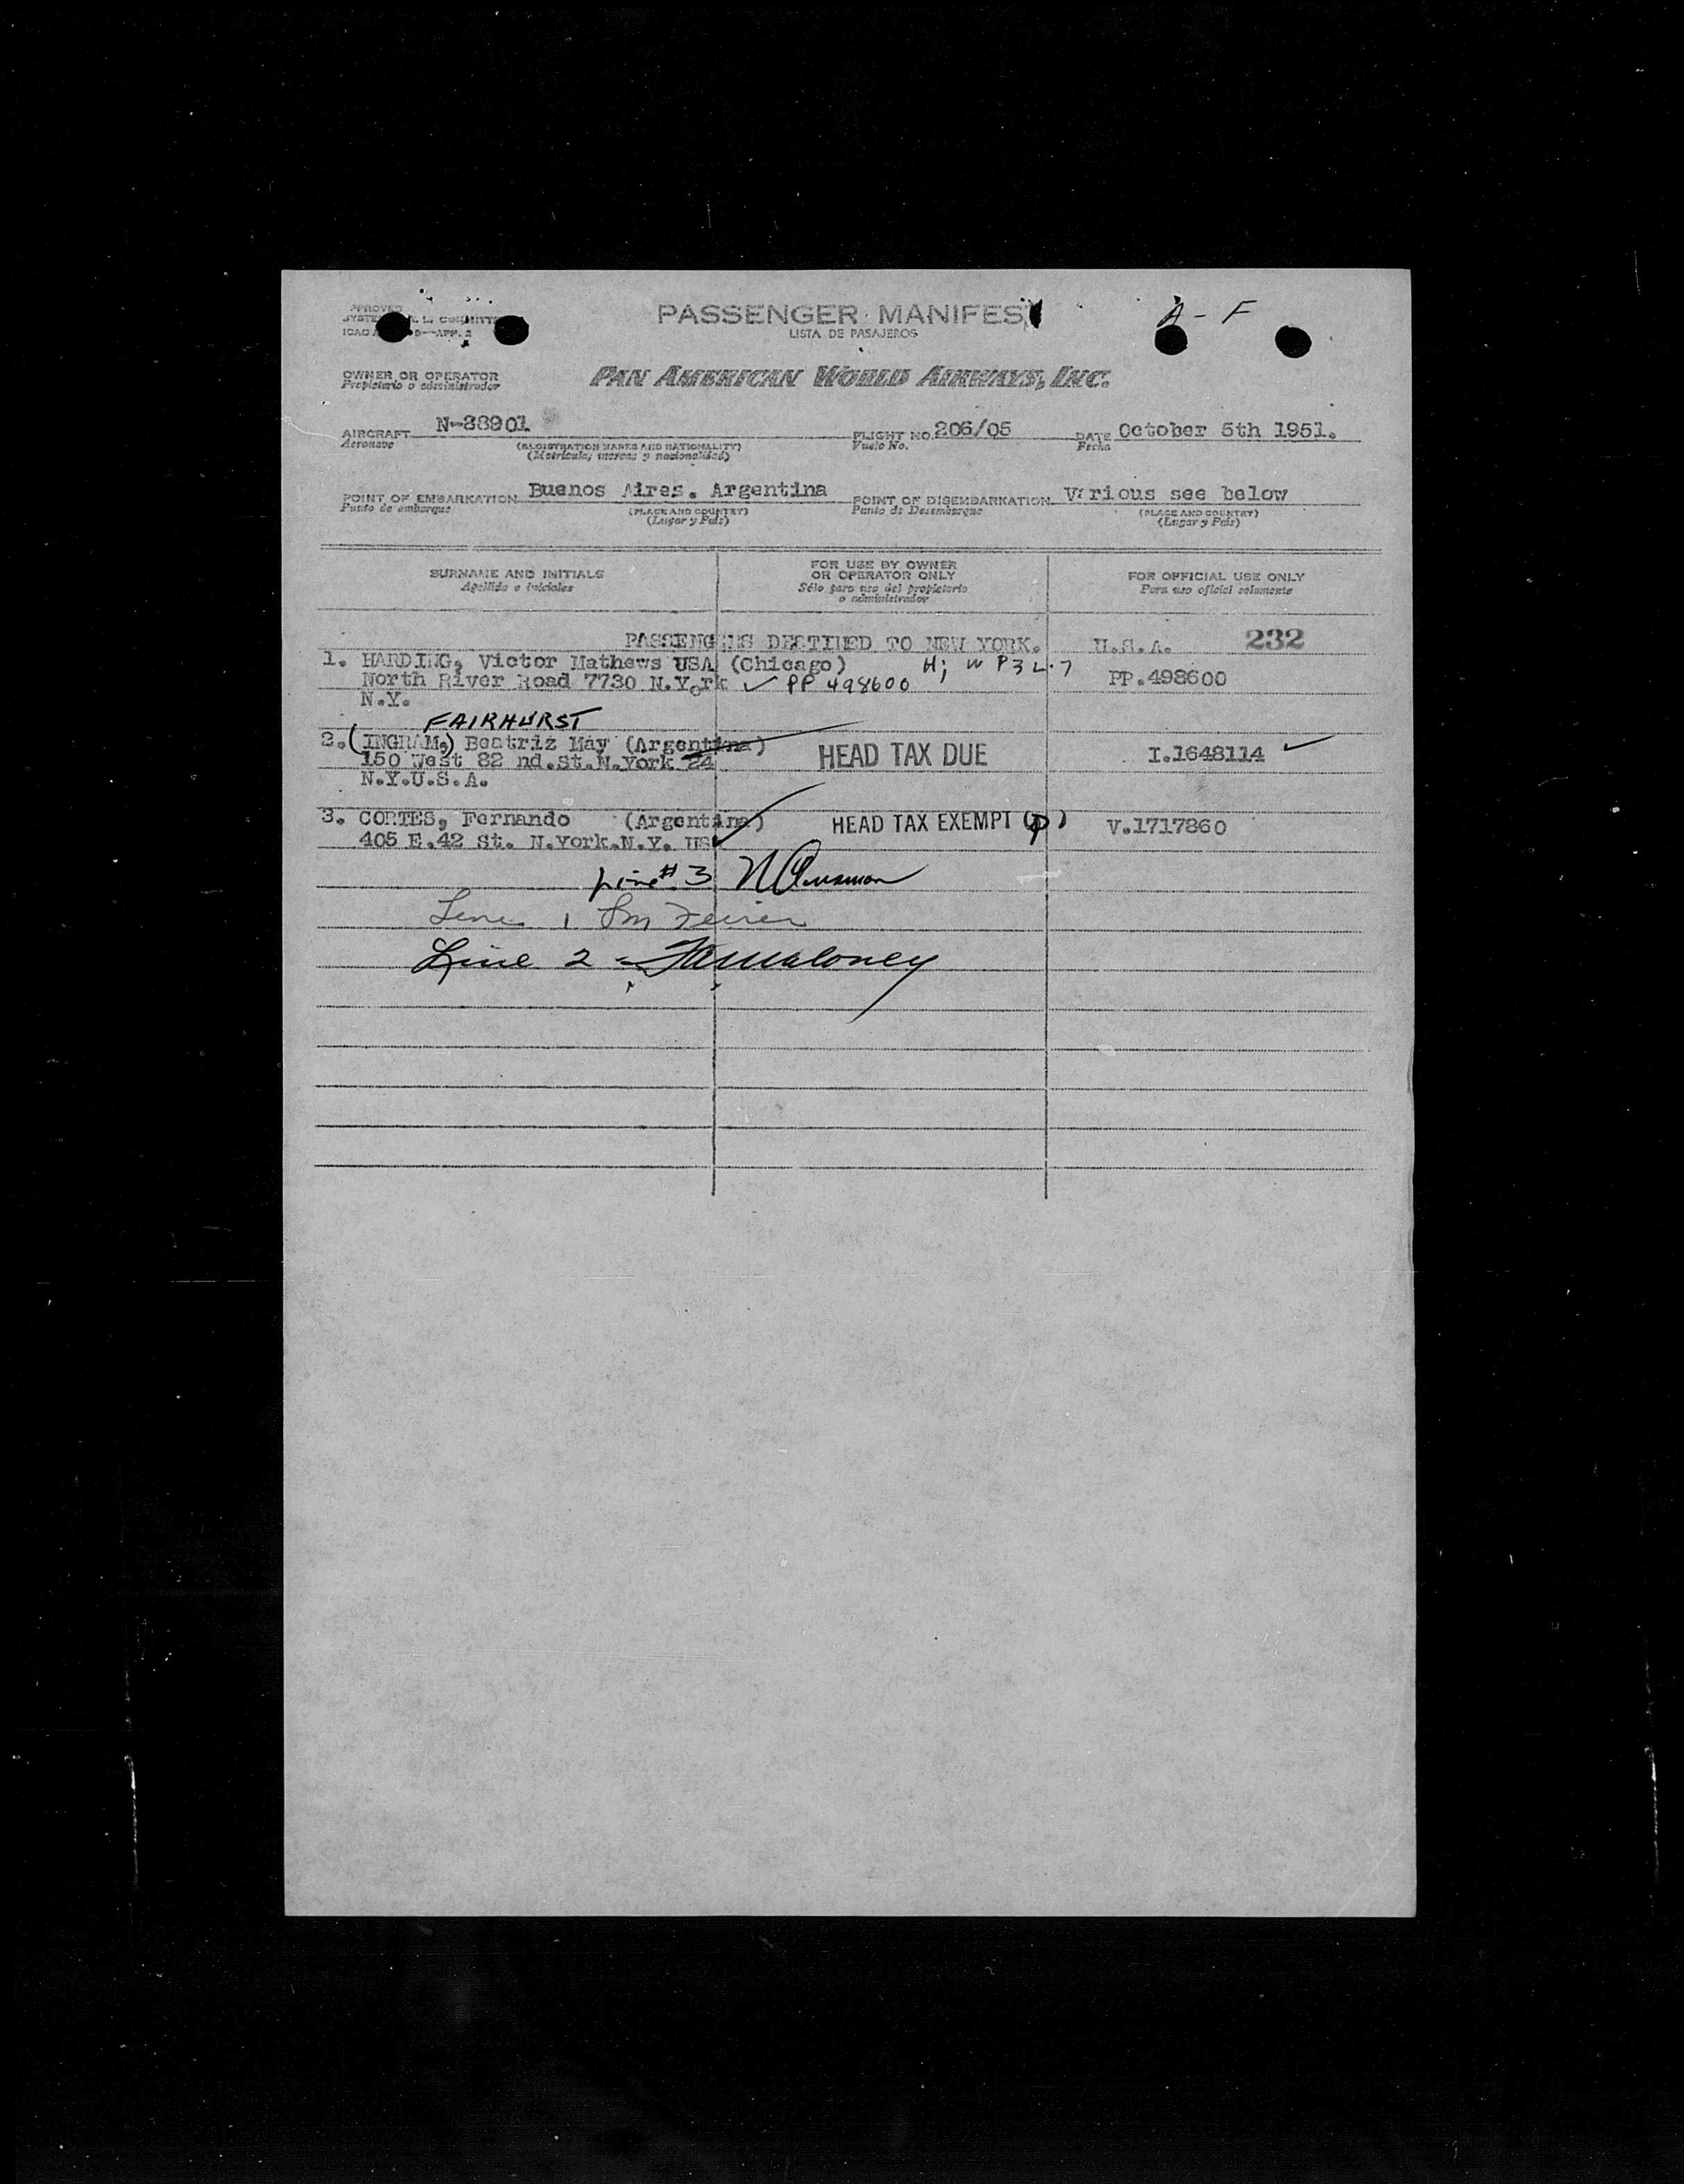 PASSENGER MANIFEST
A - F
LISTA DE PASAJEROS
APP. 2
OWNER OR OPERATOR
Propietario o administrador
PAN AMERICAN WORLD AIRWAYS, INC.
AIRCRAFT N-88901 FLIGHT NO. 206/05 DATE October 5th 1951.
Aeronave (REGISTRATION MARKS AND NATIONALITY) Vuelo No. Fecha
(Matrícula, marcas y nacionalidad)
POINT OF EMBARKATION Buenos Aires. Argentina POINT OF DISEMBARKATION Various see below
Punto de embarque (PLACE AND COUNTRY) Punto de Desembarque (PLACE AND COUNTRY)
(Lugar y País) (Lugar y País)
SURNAME AND INITIALS FOR USE BY OWNER OR OPERATOR ONLY FOR OFFICIAL USE ONLY
Apellido e iniciales Sólo para uso del propietario o administrador Para uso oficial solamente
PASSENGERS DESTINED TO NEW YORK. U.S.A. 232
1. HARDING, Victor Mathews USA (Chicago) H; W P3 L.7
North River Road 7730 N.York ✓ PP 498600 PP.498600
N.Y.
FAIRHURST
2. (INGRAM,) Beatriz May (Argentina) HEAD TAX DUE I.1648114 ✓
150 West 82 nd.St.N.York 24
N.Y.U.S.A.
3. CORTES, Fernando (Argentina) HEAD TAX EXEMPT V.1717860
405 E.42 St. N.York.N.Y. US
Line # 3
Line 1
Line 2 - Maloney